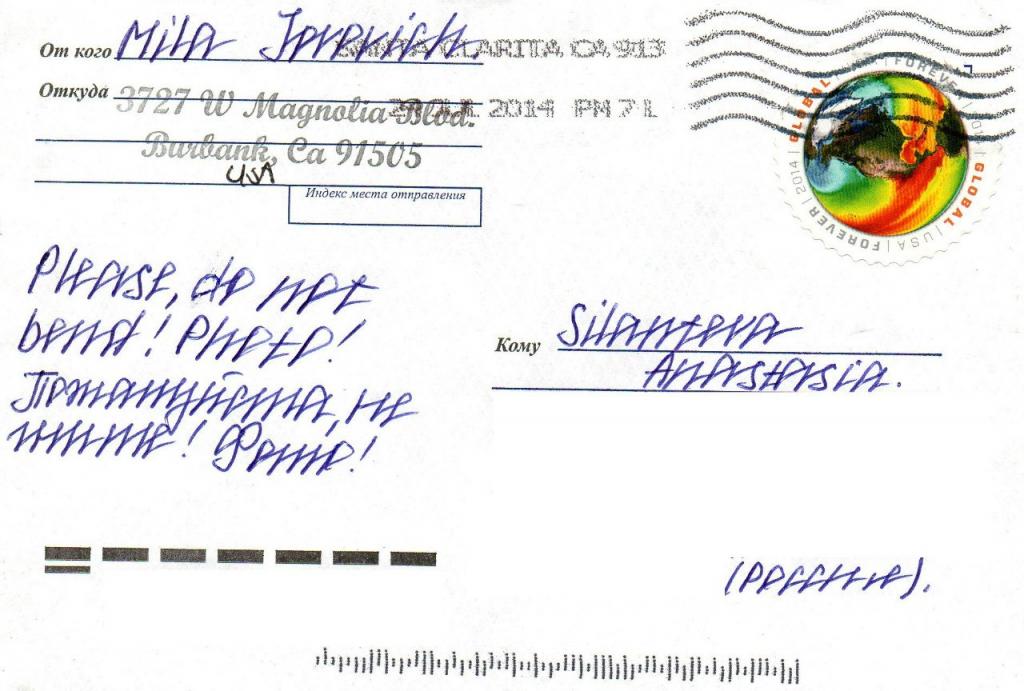 От кого Mila Jovovich.
SANTA CLARITA CA 913
Откуда 3727 W Magnolia Blvd.
2014 PM 7 L
Burbank, Ca 91505
USA
Индекс места отправления
GLOBAL | USA | FOREVER | 2014 | GLOBAL
FOREVER
Please, do not
bend! Photo!
Пожалуйста, не
гните! Фото!
Кому Silanteva
Anastasia.
(Россия).